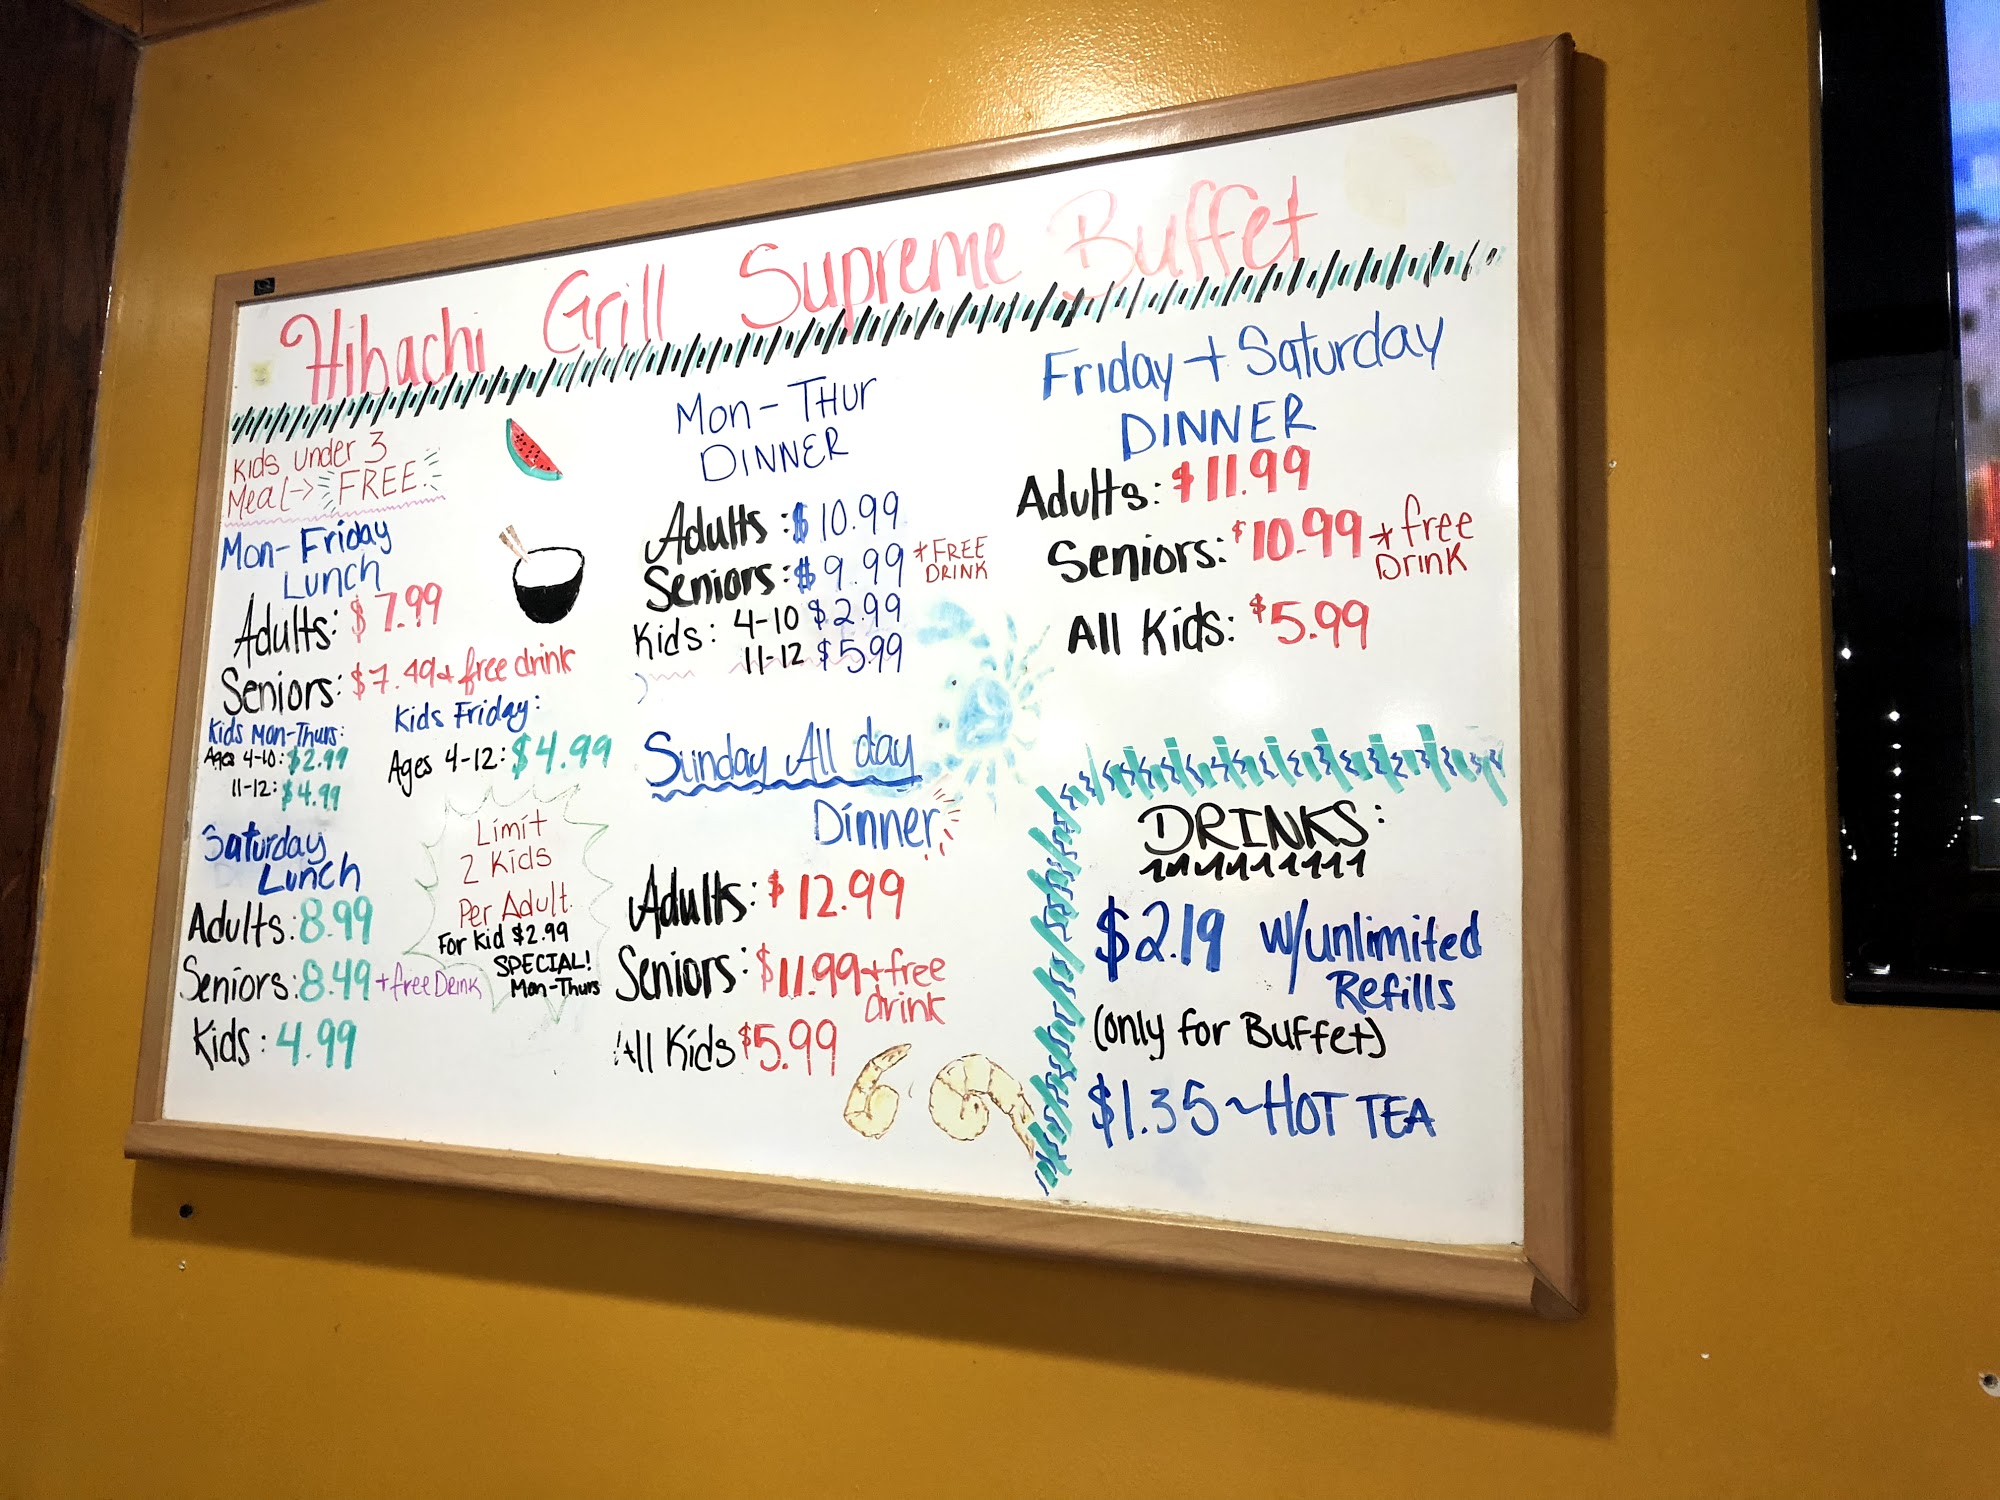 Hibachi Grill Supreme Buffet
Kids under 3
Meal-> FREE
Mon-Friday
Lunch
Adults: $7.99
Seniors: $7.49 + free drink
Kids Mon-Thurs:
Ages 4-10: $2.99
11-12: $4.99
Kids Friday:
Ages 4-12: $4.99
Saturday
Lunch
Adults: 8.99
Seniors: 8.49 + free Drink
Kids: 4.99
Limit
2 Kids
Per Adult.
For Kid $2.99
SPECIAL!
Mon-Thurs
Mon-THur
DINNER
Adults: $10.99
Seniors: $9.99 * FREE
DRINK
Kids: 4-10 $2.99
11-12 $5.99
Sunday All day
Dinner
Adults: $12.99
Seniors: $11.99 + free
drink
All Kids $5.99
Friday + Saturday
DINNER
Adults: $11.99
Seniors: $10.99 * free
Drink
All Kids: $5.99
DRINKS:
$2.19 w/unlimited
Refills
(only for Buffet)
$1.35 ~ HOT TEA